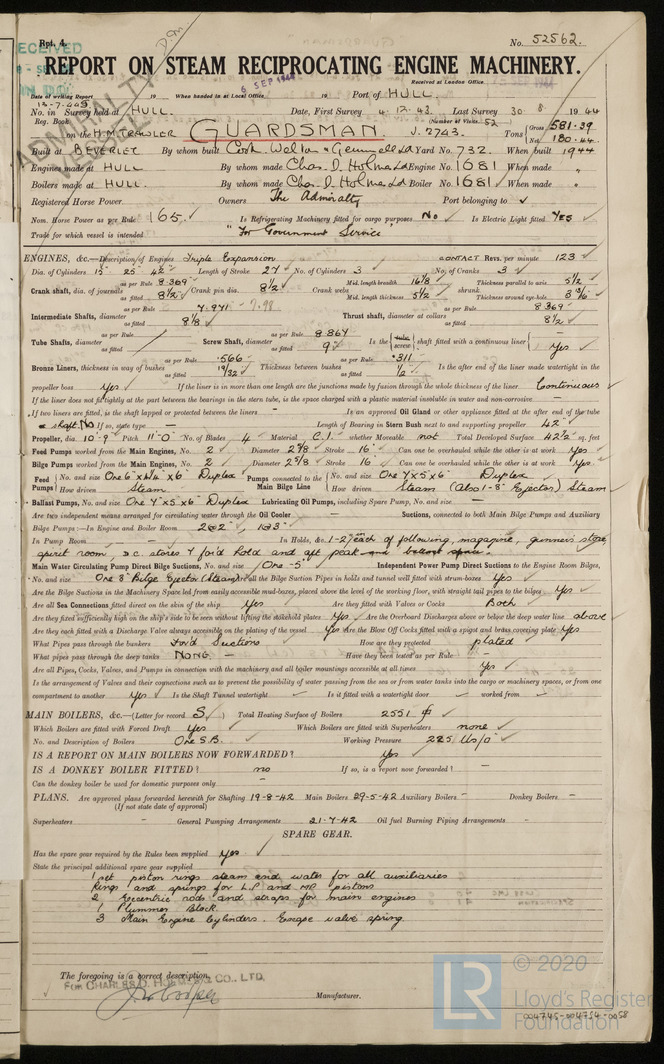 Rpt. 4.
No. 52562.
RECEIVED
REPORT ON STEAM RECIPROCATING ENGINE MACHINERY.
6 SEP 1944
Received at London Office
Date of writing Report 19 When handed in at Local Office 19 Port of HULL.
No. in Survey held at HULL. Date, First Survey 4.12.43. Last Survey 30 8 1944
Reg. Book. (Number of Visits 52
on the H.M TRAWLER GUARDSMAN J.2743. Tons Gross 581.39
Net 180.44
Built at BEVERLEY By whom built Cook Welton & Gemmell Ld Yard No. 732. When built 1944
Engines made at HULL By whom made Chas. D. Holmes Ld Engine No. 1681 When made "
Boilers made at HULL. By whom made Chas. D. Holmes Ld Boiler No. 1681 When made "
Registered Horse Power Owners The Admiralty Port belonging to
Nom. Horse Power as per Rule 165. Is Refrigerating Machinery fitted for cargo purposes No Is Electric Light fitted YES
Trade for which vessel is intended "For Government Service"
ENGINES, &c.—Description of Engines Triple Expansion CONTACT Revs. per minute 123
Dia. of Cylinders 15" 25" 42" Length of Stroke 27 No. of Cylinders 3 No. of Cranks 3
Crank shaft, dia. of journals as per Rule 8.369 as fitted 8½ Crank pin dia. 8½ Crank webs Mid. length breadth 16⅛ Mid. length thickness 5½ shrunk Thickness parallel to axis 5½ Thickness around eye-hole 3 13/16
Intermediate Shafts, diameter as per Rule 7.971 as fitted 8⅛ Thrust shaft, diameter at collars as per Rule 8.369 as fitted 8½
Tube Shafts, diameter as per Rule as fitted Screw Shaft, diameter as per Rule 8.864 as fitted 9 Is the tube screw shaft fitted with a continuous liner Yes
Bronze Liners, thickness in way of bushes as per Rule .566 as fitted 19/32 Thickness between bushes as per Rule .311 as fitted ½ Is the after end of the liner made watertight in the
propeller boss Yes If the liner is in more than one length are the junctions made by fusion through the whole thickness of the liner Continuous
If the liner does not fit tightly at the part between the bearings in the stern tube, is the space charged with a plastic material insoluble in water and non-corrosive –
If two liners are fitted, is the shaft lapped or protected between the liners – Is an approved Oil Gland or other appliance fitted at the after end of the tube
shaft No If so, state type – Length of Bearing in Stern Bush next to and supporting propeller 42"
Propeller, dia 10-9 Pitch 11-0 No. of Blades 4 Material C.I. whether Moveable not Total Developed Surface 42½ sq. feet
Feed Pumps worked from the Main Engines, No. 2 Diameter 2⅝ Stroke 16 Can one be overhauled while the other is at work Yes
Bilge Pumps worked from the Main Engines, No. 2 Diameter 2⅝ Stroke 16 Can one be overhauled while the other is at work Yes
Feed Pumps No. and size One 6 x 4¼ x 6 Duplex How driven Steam Pumps connected to the Main Bilge Line No. and size One 7 x 5 x 6 Duplex How driven Steam (Also 1-8" Ejector) Steam
Ballast Pumps, No. and size One 7 x 5 x 6 Duplex Lubricating Oil Pumps, including Spare Pump, No. and size –
Are two independent means arranged for circulating water through the Oil Cooler – Suctions, connected to both Main Bilge Pumps and Auxiliary
Bilge Pumps:—In Engine and Boiler Room 2@2", 1@3"
In Pump Room – In Holds, &c. 1-2" each in of following, magazine, gunners store,
spirit room, D.C. stores & for'd hold and aft peak
Main Water Circulating Pump Direct Bilge Suctions, No. and size One - 5" Independent Power Pump Direct Suctions to the Engine Room Bilges,
No. and size One 8" Bilge Ejector (Steam) Are all the Bilge Suction Pipes in holds and tunnel well fitted with strum-boxes Yes
Are the Bilge Suctions in the Machinery Space led from easily accessible mud-boxes, placed above the level of the working floor, with straight tail pipes to the bilges Yes
Are all Sea Connections fitted direct on the skin of the ship Yes Are they fitted with Valves or Cocks Both
Are they fixed sufficiently high on the ship's side to be seen without lifting the stokehold plates Yes Are the Overboard Discharges above or below the deep water line above
Are they each fitted with a Discharge Valve always accessible on the plating of the vessel Yes Are the Blow Off Cocks fitted with a spigot and brass covering plate Yes
What Pipes pass through the bunkers Ford Suctions How are they protected plated
What pipes pass through the deep tanks NONE – Have they been tested as per Rule –
Are all Pipes, Cocks, Valves, and Pumps in connection with the machinery and all boiler mountings accessible at all times Yes
Is the arrangement of Valves and their connections such as to prevent the possibility of water passing from the sea or from water tanks into the cargo or machinery spaces, or from one
compartment to another Yes Is the Shaft Tunnel watertight – Is it fitted with a watertight door – worked from –
MAIN BOILERS, &c.—(Letter for record S.) Total Heating Surface of Boilers 2551 ф
Which Boilers are fitted with Forced Draft Yes Which Boilers are fitted with Superheaters none
No. and Description of Boilers One S.B. Working Pressure 225 lbs/□"
IS A REPORT ON MAIN BOILERS NOW FORWARDED? Yes
IS A DONKEY BOILER FITTED? no If so, is a report now forwarded? –
Can the donkey boiler be used for domestic purposes only –
PLANS. Are approved plans forwarded herewith for Shafting 19-8-42 Main Boilers 29-5-42 Auxiliary Boilers – Donkey Boilers –
(If not state date of approval)
Superheaters – General Pumping Arrangements 21-7-42 Oil fuel Burning Piping Arrangements –
SPARE GEAR.
Has the spare gear required by the Rules been supplied Yes
State the principal additional spare gear supplied
1 set piston rings steam and water for all auxiliaries
Rings and springs for L.P and MP pistons
2 Eccentric rods and straps for main engines
1 Plummer Block.
3 Main Engine Cylinders. Escape valve spring
The foregoing is a correct description,
FOR CHARLES D. HOLMES & CO., LTD.
Manufacturer.
LR
© 2020
Lloyd's Register
Foundation
004745-004754-0058